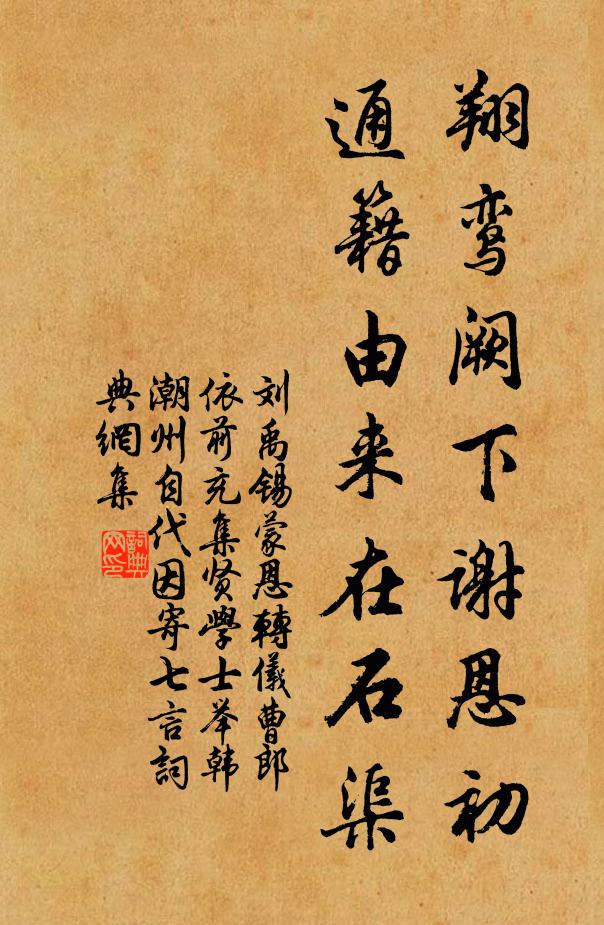 翔鸾阙下谢恩初
通籍由来在石渠
刘禹锡蒙恩轉儀曹郎
依前充集贤學士举韩
潮州自代因寄七言詞
典網集
詞典
网印